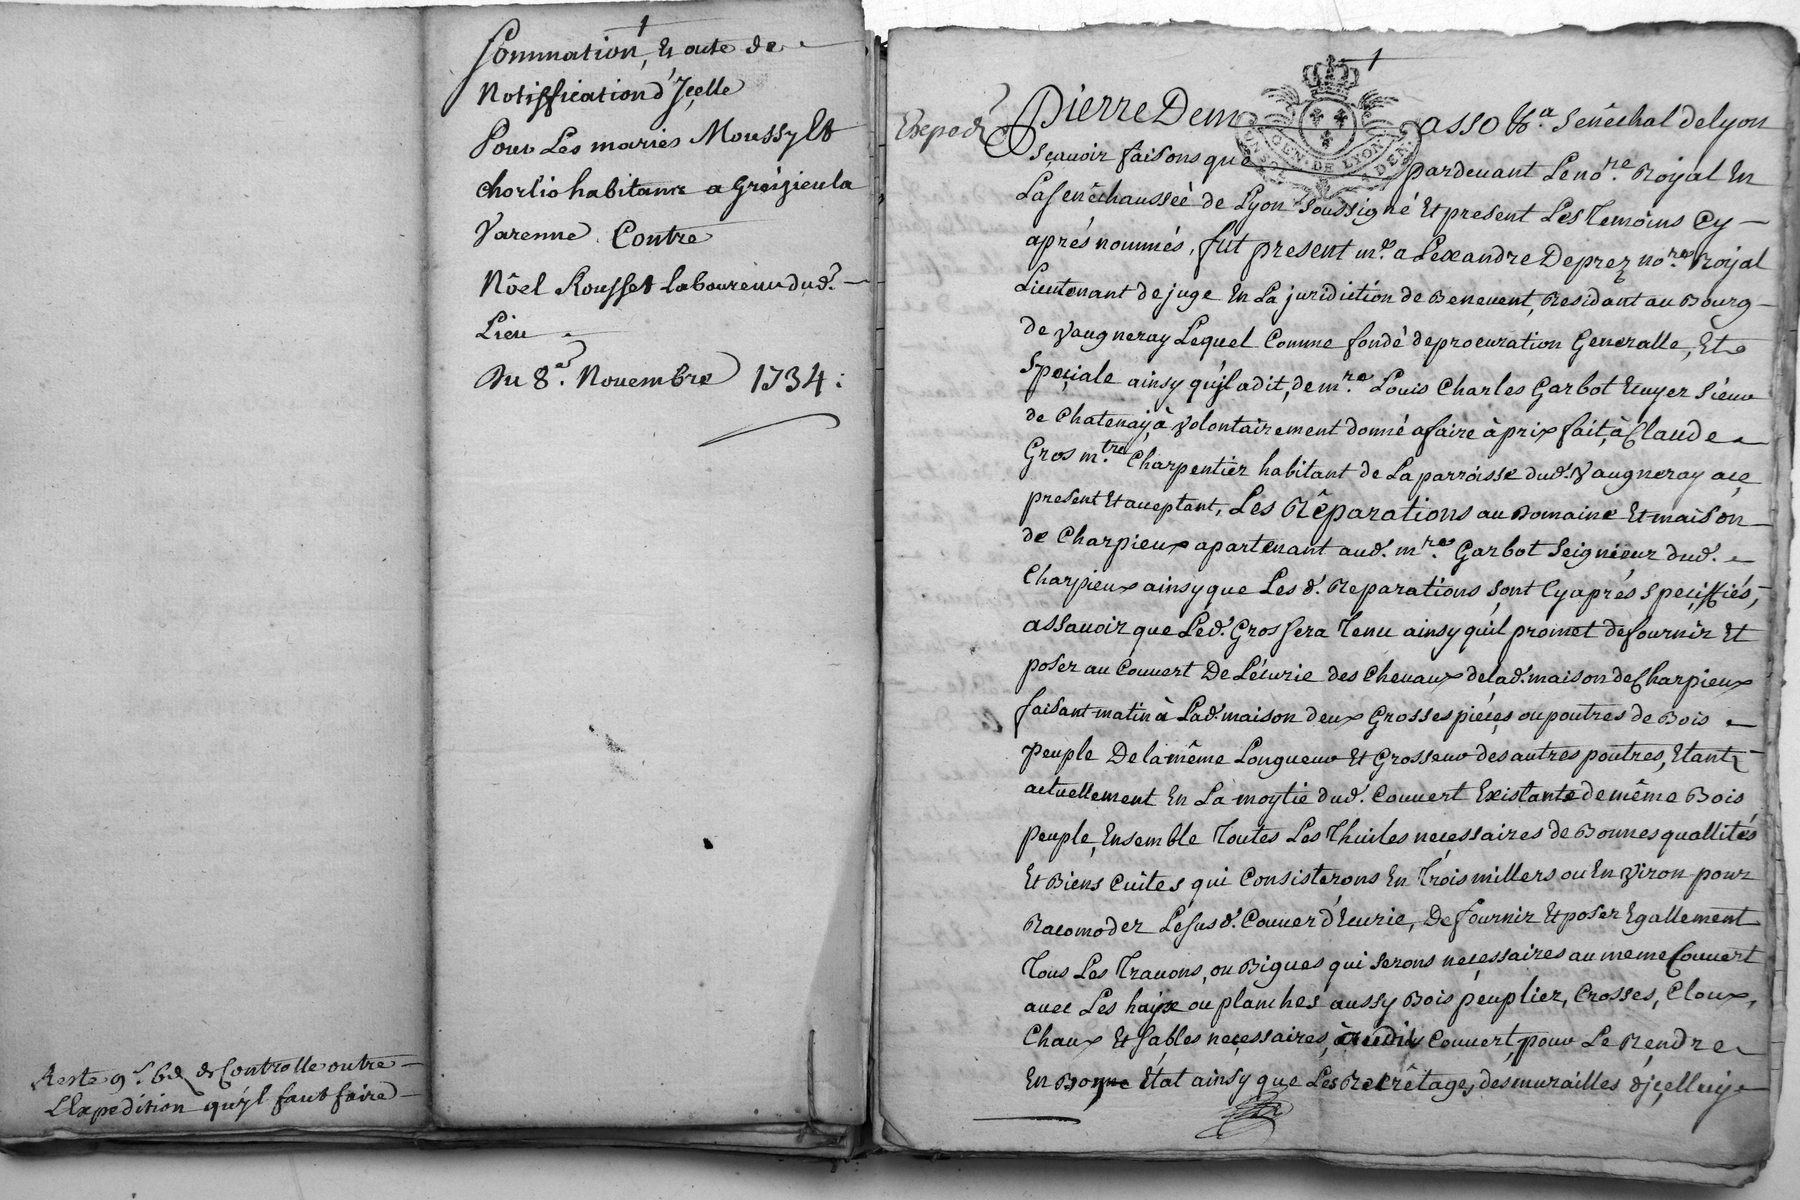 Sommation, Et acte de
Notiffication d'Jçelle
Pour Les mariés Moussy Et
chorlio habitans a Gréizieu la
Varenne Contre
Nôel Rousset laboureur dud.
Lieu
Du 8e. Nouembre 1734:
Reste 9s. 6d de Controlle outre
L'Expedition qu'yl faut faire
Exped
Pierre Dem asso &a Senéchal de lyon
sçauoir faisons que pardeuant Le nore. Royal En
La senéchausséé de Lyon soussigné Et present Les Temoins Cy
aprés nommés, fut present me. aLexandre Deprez nore. Royal
Lieutenant de juge En La juridiction de Beneuent, Residant au Bourg
de Vaugneray Lequel Comme fondé de procuration Generalle, Et
Speçiale ainsy qu'jl a dit, de mre. Louis Charles Garbot Ecuyer sieur
de Chatenay, à Volontairement donné a faire à prix fait, à Claude
Gros mtre. Charpentier habitant de La parroisse dud. Vaugneray acy
present Et acceptant, Les Rêparations au Domaine Et maison
de Charpieux apartenant aud. mre. Garbot Seignieur dud.
Charpieux ainsy que Les d. Reparations sont Cy aprés speciffiés,
assauoir que Led. Gros sera Tenu ainsy qu'il promet de fournir Et
poser au Couuert De L'écurie des Cheuaux de lad. maison de Charpieux
faisant matin à Lad. maison deux Grosses piéçes ou poutres de Bois
peuple De la même Longueur Et Grosseur des autres poutres, Etant
actuellement En La moytié dud. Couuert Existante de même Bois
peuple, Ensemble Toutes Les Thuiles necessaires de Bonnes quallités
Et Biens Cuites qui Consisterons En Trois millers ou En Viron pour
Racomoder Le susd. Couuer d'Ecurie, De fournir Et poser Egallement
Tous Les Trauons, ou Bigues qui serons necessaires au meme Couuert
auec Les haix ou planches aussy Bois peuplier, Crosses, Cloux,
Chaux Et sables neçessaires, audit Couuert, pour Le Rendre
En Bonne Etat ainsy que Les Recrêtages, des murailles d'jçelluy